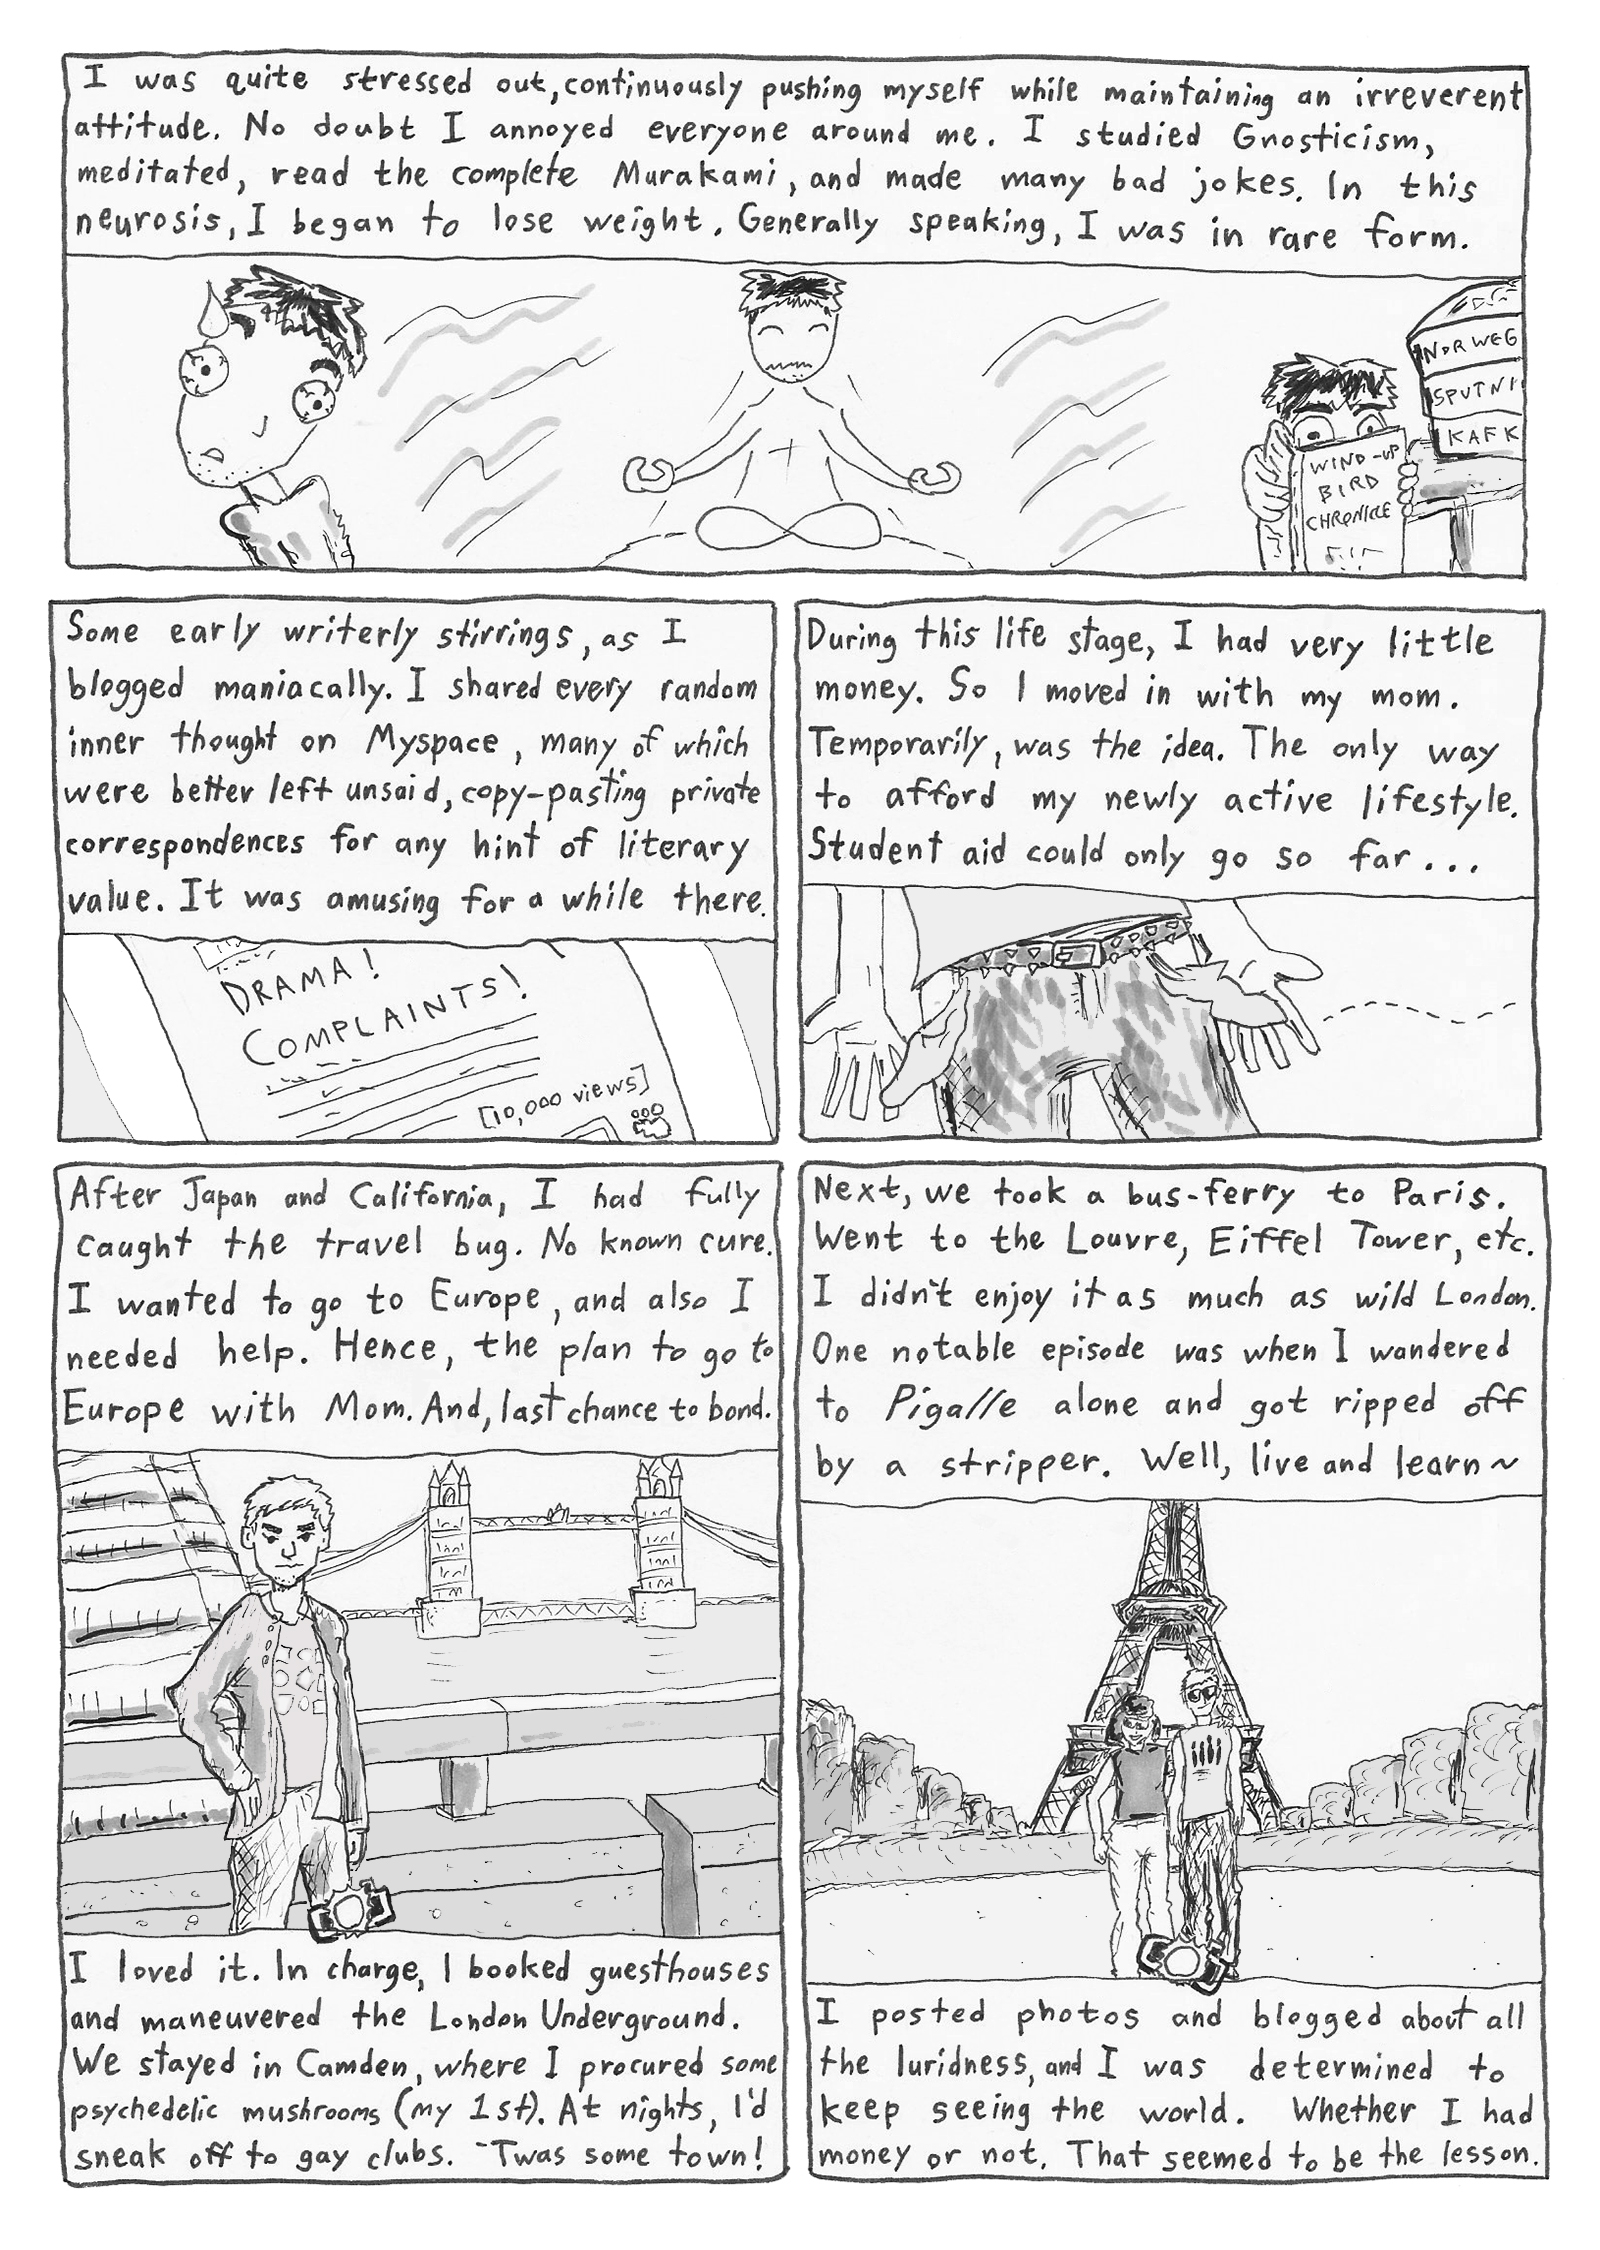 I was quite stressed out, continuously pushing myself while maintaining an irreverent
attitude. No doubt I annoyed everyone around me. I studied Gnosticism,
meditated, read the complete Murakami, and made many bad jokes. In this
neurosis, I began to lose weight. Generally speaking, I was in rare form.
NORWEG
SPUTNI
KAFK
WIND-UP
BIRD
CHRONICLE
Some early writerly stirrings, as I
blogged maniacally. I shared every random
inner thought on Myspace, many of which
were better left unsaid, copy-pasting private
correspondences for any hint of literary
value. It was amusing for a while there.
DRAMA!
COMPLAINTS!
[10,000 views]
During this life stage, I had very little
money. So I moved in with my mom.
Temporarily, was the idea. The only way
to afford my newly active lifestyle.
Student aid could only go so far...
After Japan and California, I had fully
caught the travel bug. No known cure.
I wanted to go to Europe, and also I
needed help. Hence, the plan to go to
Europe with Mom. And, last chance to bond.
I loved it. In charge, I booked guesthouses
and maneuvered the London Underground.
We stayed in Camden, where I procured some
psychedelic mushrooms (my 1st). At nights, I'd
sneak off to gay clubs. 'Twas some town!
Next, we took a bus-ferry to Paris.
Went to the Louvre, Eiffel Tower, etc.
I didn't enjoy it as much as wild London.
One notable episode was when I wandered
to Pigalle alone and got ripped off
by a stripper. Well, live and learn~
I posted photos and blogged about all
the luridness, and I was determined to
keep seeing the world. Whether I had
money or not. That seemed to be the lesson.